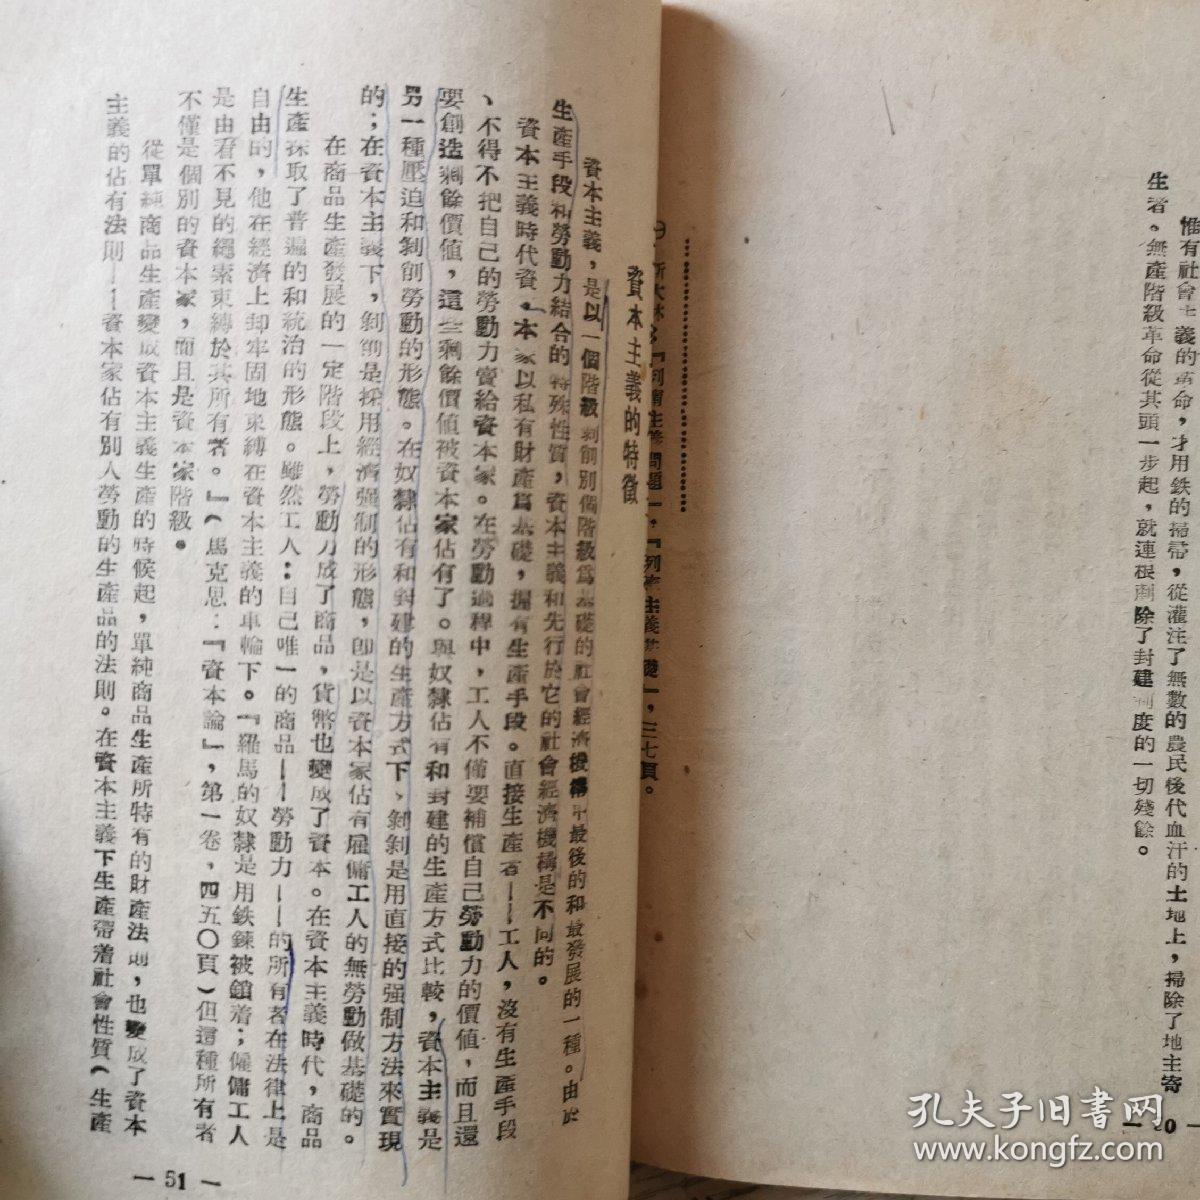 惟有社會主義的革命，才用鉄的掃帚，從灌注了無數的農民後代血汗的土地上，掃除了地主寄
生者。無產階級革命從其頭一步起，就連根剷除了封建制度的一切殘餘。
問題
三七頁。
資本主義的特徵
資本主義，是以一個階級剝削別個階級爲基礎的社會經濟機構中最後的和最發展的一種。由於
生產手段和勞動力結合的特殊性質，資本主義和先行於它的社會經濟機構是不同的。
資本主義時代資本家以私有財產爲基礎，握有生產手段。直接生產者——工人，沒有生產手段
、不得不把自己的勞動力賣給資本家。在勞動過程中，工人不僅要補償自己勞動力的價値，而且還
要創造剩餘價値，這些剩餘價値被資本家佔有了。與奴隸佔有和封建的生產方式比較，資本主義是
另一種壓迫和剝削勞動的形態。在奴隸佔有和封建的生產方式下、剝削是用直接的强制方法來實現
的；在資本主義下，剝削是採用經濟强制的形態，卽是以資本家佔有雇傭工人的無勞動做基礎的。
在商品生產發展的一定階段上，勞動力成了商品，貨幣也變成了資本。在資本主義時代，商品
生產採取了普遍的和統治的形態。雖然工人：自己唯一的商品——勞動力——的所有者在法律上是
自由的，他在經濟上却牢固地束縛在資本主義的車輪下。『羅馬的奴隸是用鉄鍊被鎖着；僱傭工人
是由看不見的繩索束縛於其所有者。』（馬克思：『資本論』，第一卷，四五〇頁）但這種所有者
不僅是個別的資本家，而且是資本家階級。
從單純商品生產變成資本主義生產的時候起，單純商品生產所特有的財產法則，也變成了資本
主義的佔有法則——資本家佔有別人勞動的生產品的法則。在資本主義下生產帶着社會性質（生產
— 51 —
孔夫子旧書网
www.kongfz.com